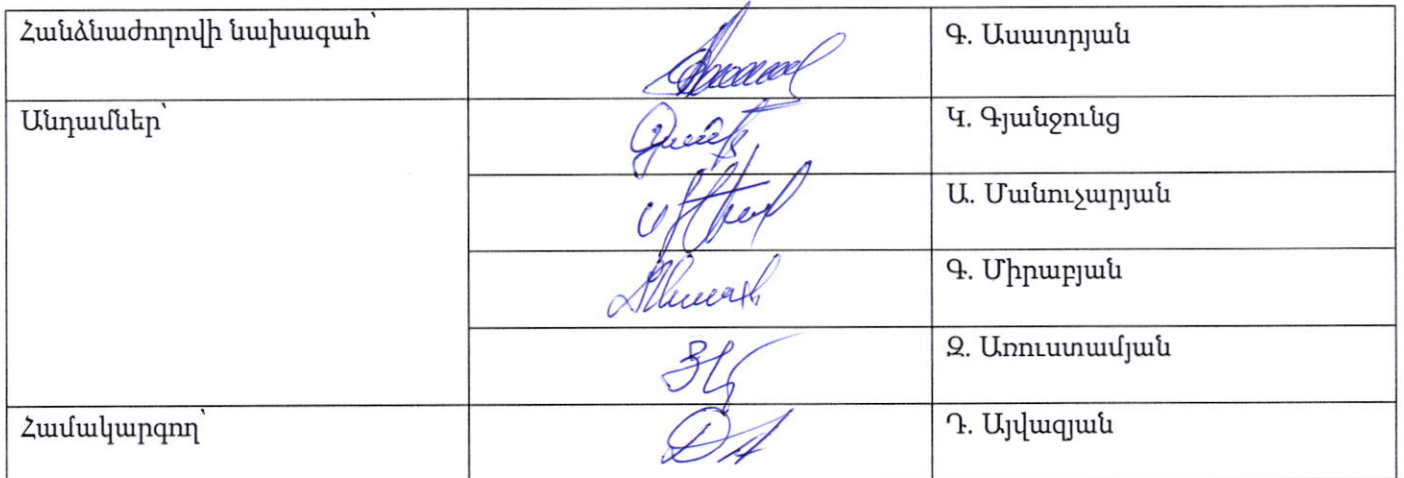 Հանձնաժողովի նախագահ՝
Գ. Ասատրյան
Անդամներ՝
Կ. Գյանջունց
Ա. Մանուչարյան
Գ. Միրաբյան
Զ. Առուստամյան
Համակարգող՝
Դ. Այվազյան